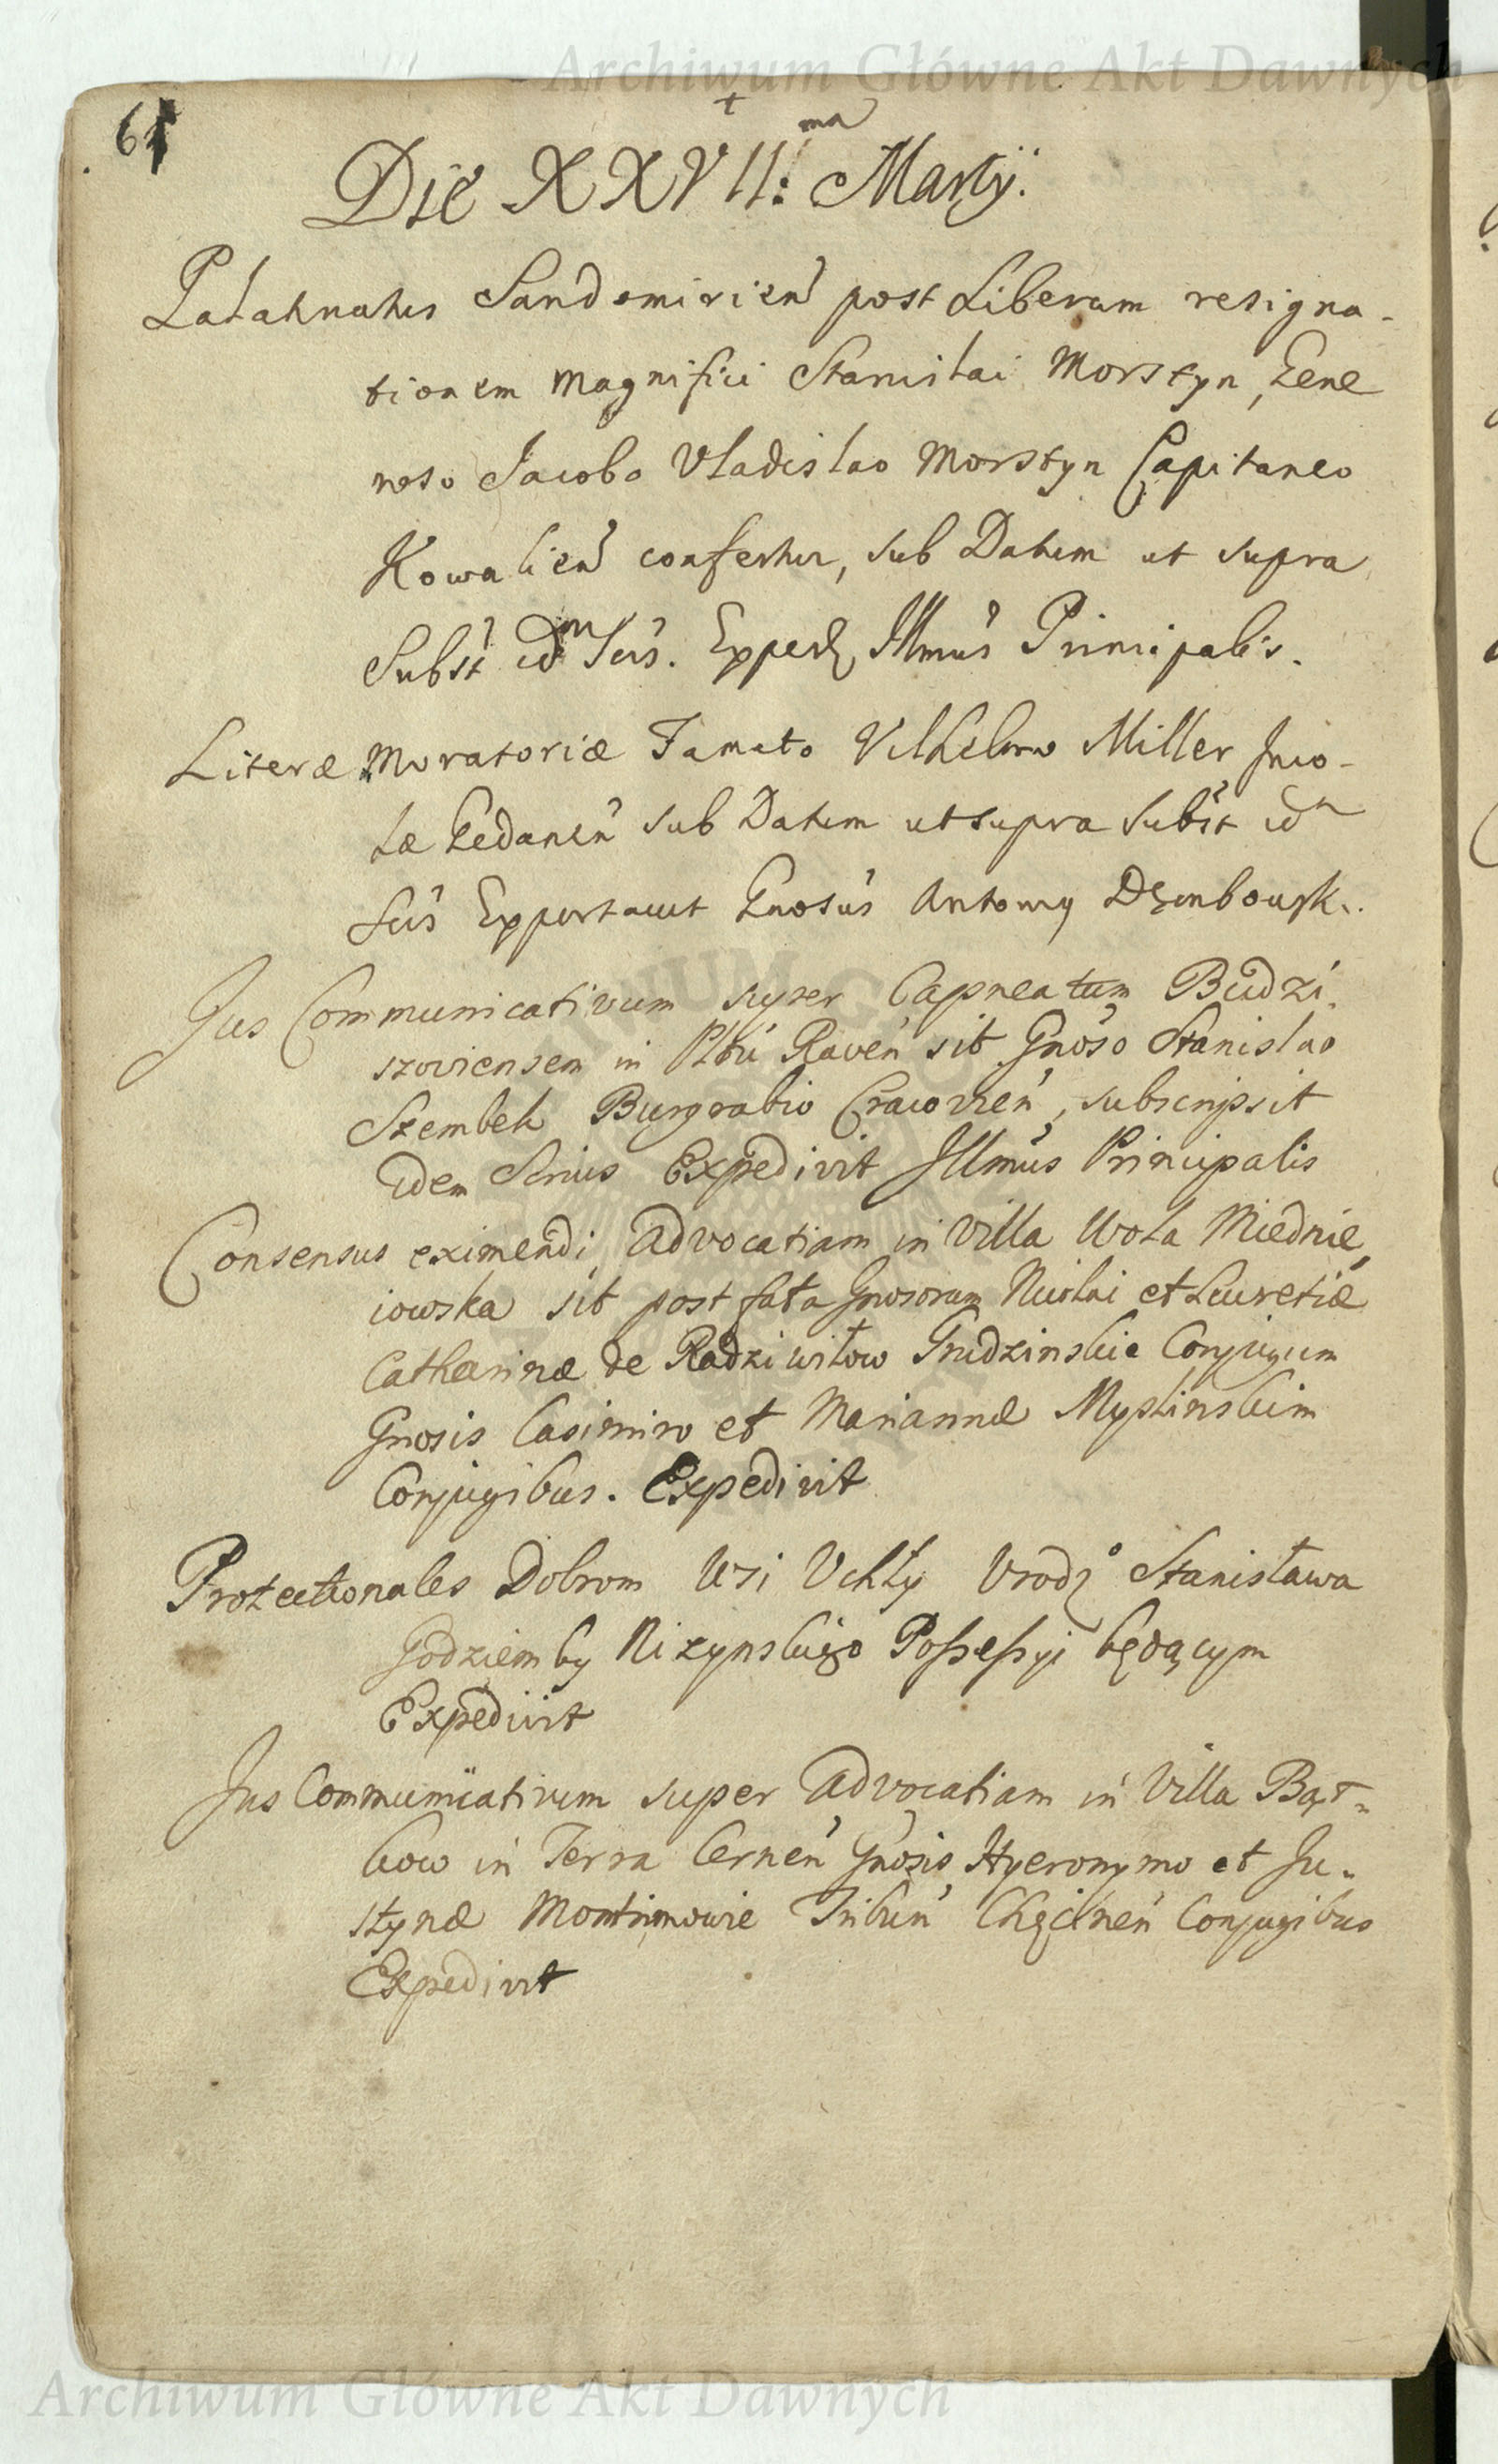 Archiwum Główne Akt Dawnych
61
Die XXVII: ma Martij.
Palatinatus Sandomirien post Liberam resigna-
tionem Magnifici Stanislai Morstyn, Gene
roso Jacobo Vladislao Morstyn Capitaneo
Kowalien confertur, sub Datum ut supra
Subst idm Scis. Exped Illmus Principalis.
Literæ Moratoriæ Famato Vilhelmo Miller Inco-
læ Gedanen sub Datum ut supra Subst idm
Scis Exportavit Gnosus Antoniy Dęmbowsk..
Jus Communicativum super Capneatum Budzi.
szoviensem in Pltu Raven sit Gnoso Stanislao
Szembek Burgrabio Cracovien, subscripsit
idem Scrius Expedivit Illmus Principalis
Consensus eximendi Advocatiam in Villa Wola Miednie,
iowska sit post fata Gnosorum Nicolai et Lucretiæ
Catherinæ de Radziwiłow Grudzinskie Conjugum
Gnosis Casimiro et Mariannæ Myslinskim
Conjugibus. Expedivit
Protectionales Dobrom Wsi Vchły Vrodzo Stanisława
Godziemby Nizynskiego Possessyi będącym
Expedivit
Jus Communicativum super Advocatiam in Villa Bąt-
kow in Terra Cernen Gnosis Hyeronymo et Ju-
stynæ Montrimowie Tribun Chęcinen Conjugibus
Expedivit
Archiwum Główne Akt Dawnych